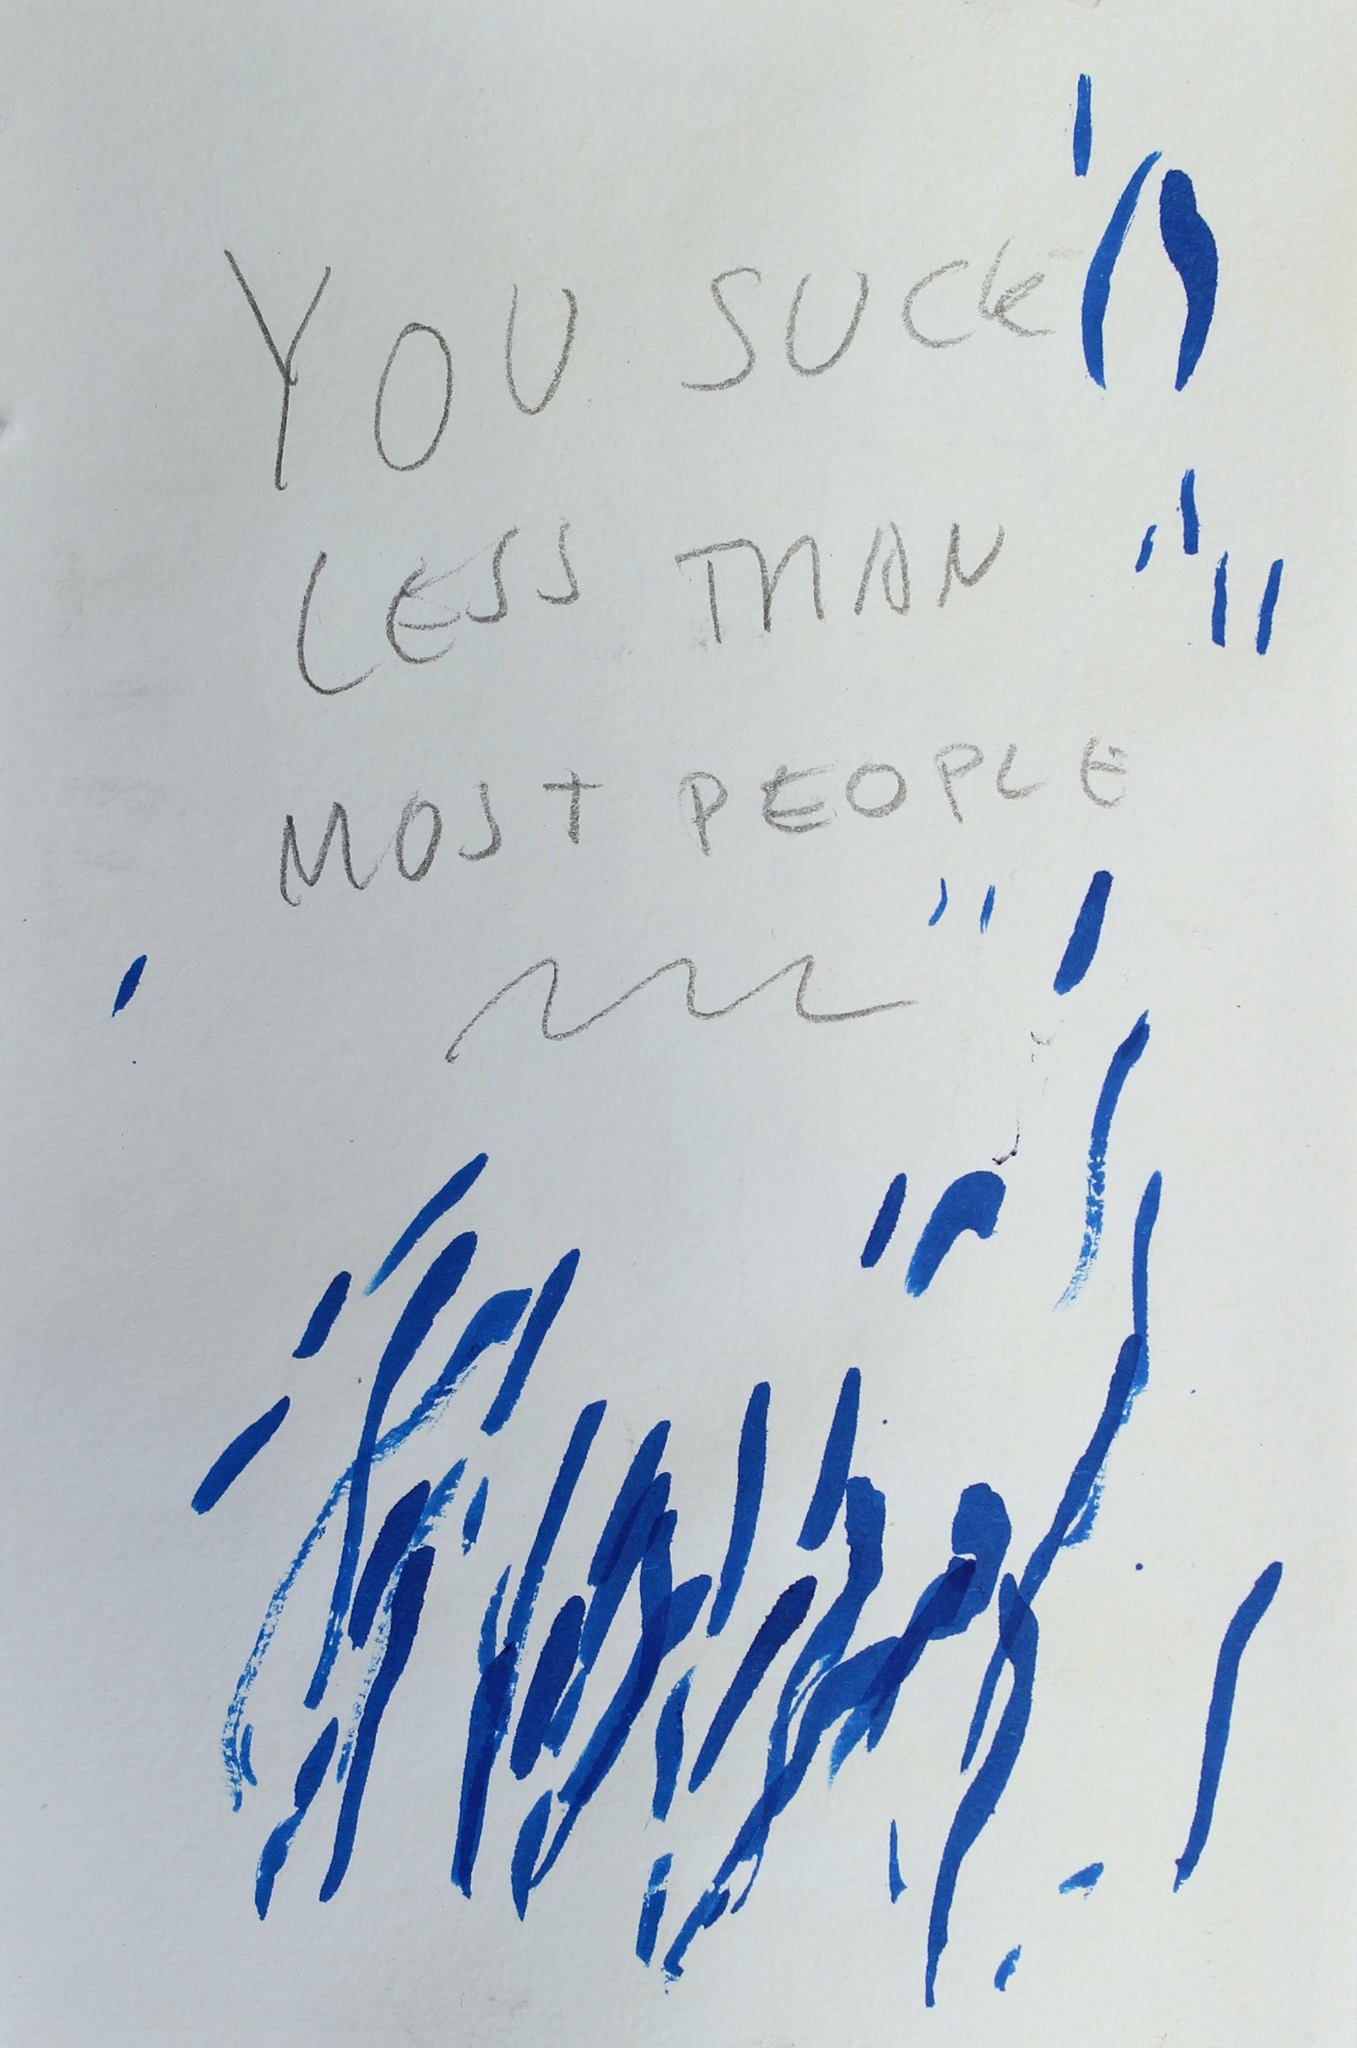 YOU SUCK
LESS THAN
MOST PEOPLE